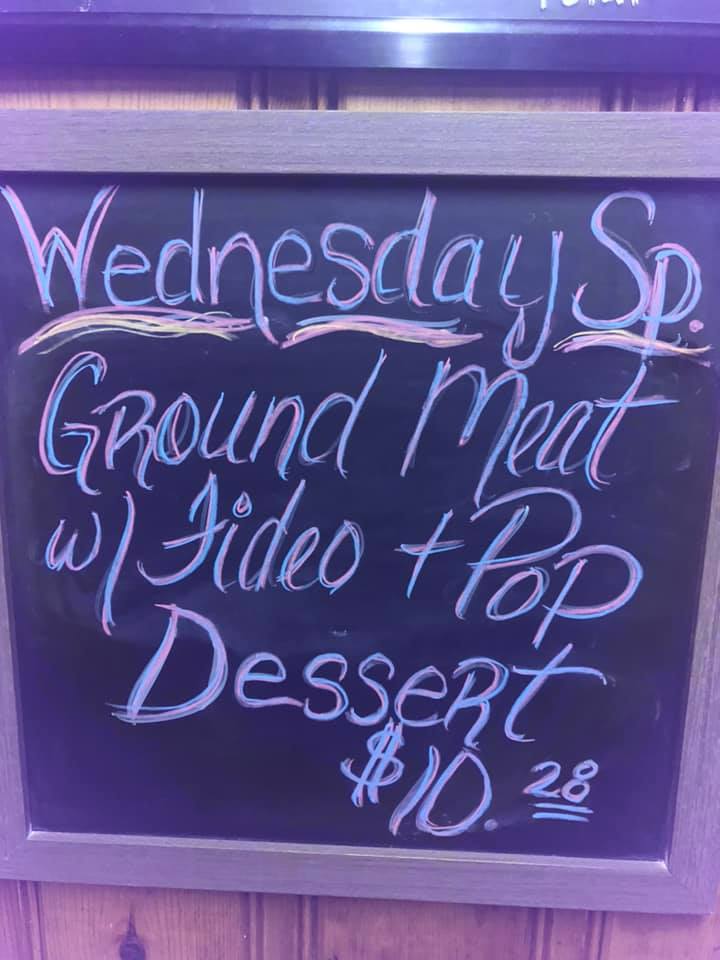 Wednesday Sp.
Ground Meat
w/ Fideo + Pop
Dessert
$10.28